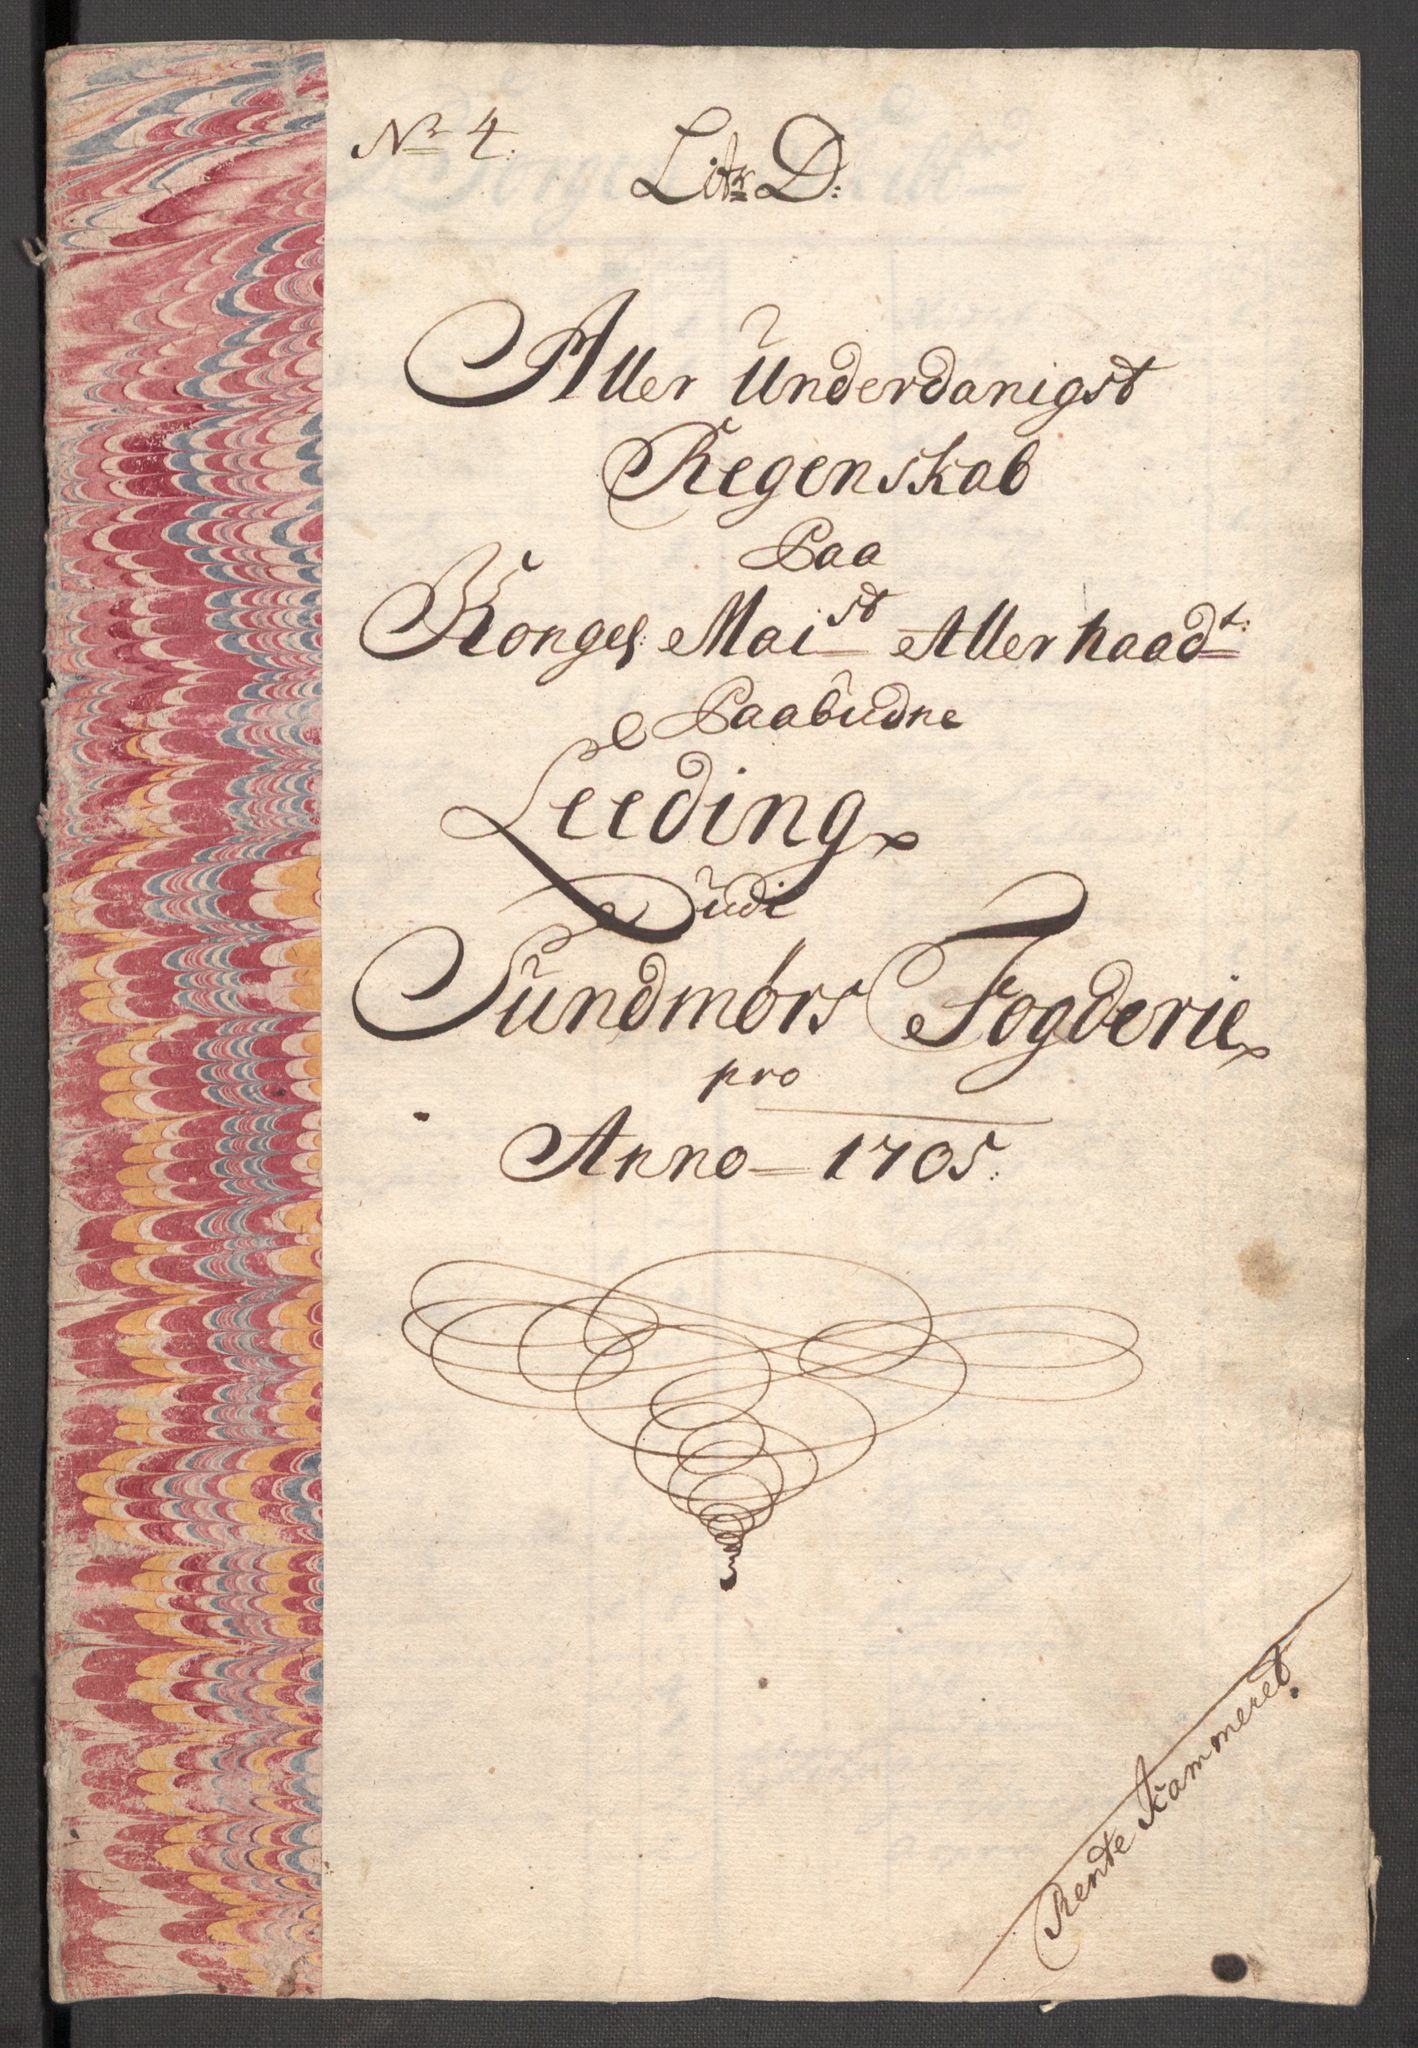 No 4.
Litr D:
Aller Underdanigst
Regenskab
Paa
Kongel: Maist Aller naadt:
Paabudne
Leeding
udi
Sundmørs Fogderie
pro
Anno 1705.
Rente Kammeret.